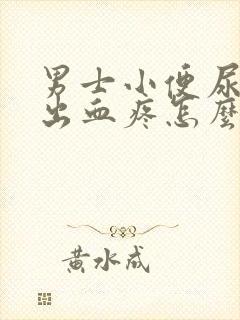 男士小便尿
出血疼怎麼
黄水成